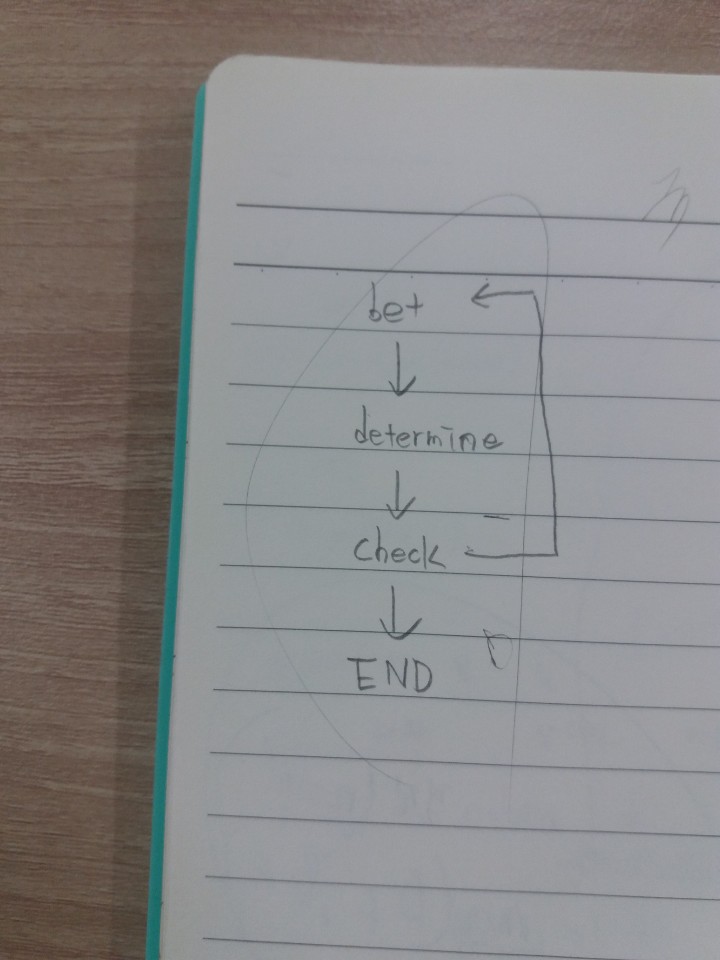 bet
determine
check
END